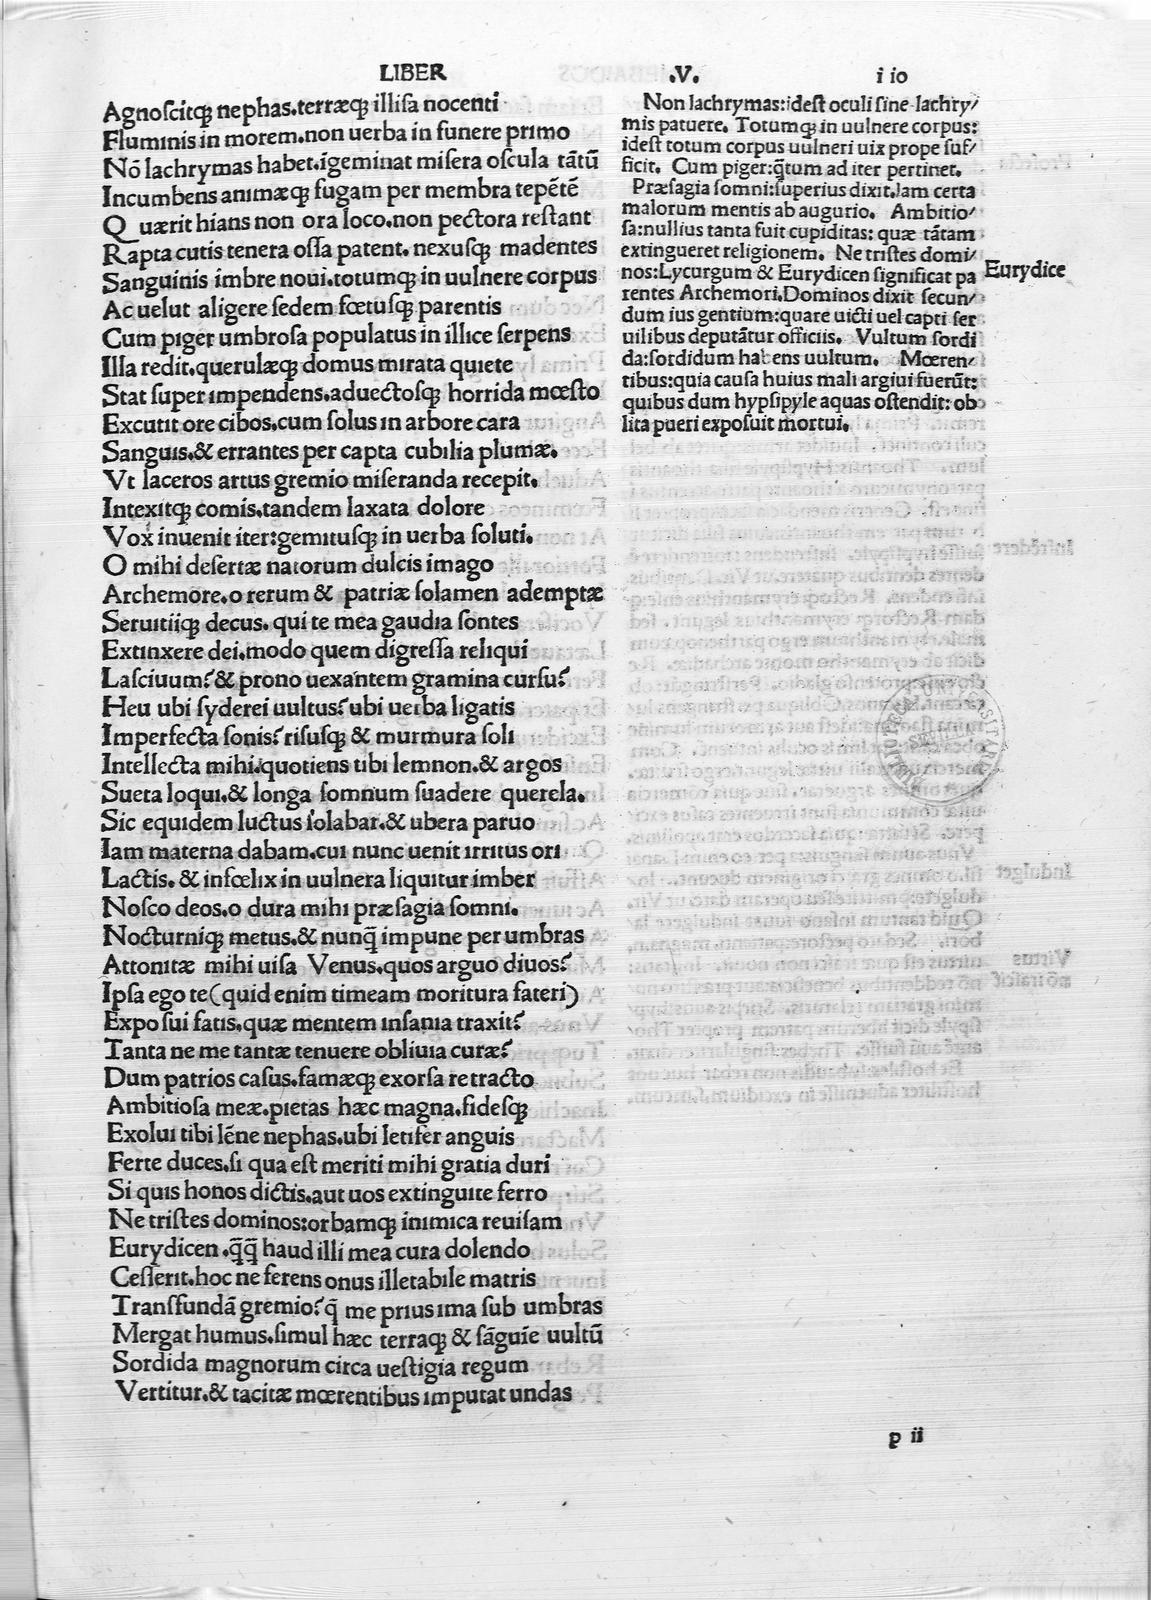 LIBER .V. i io
Agnoſcitqꝫ nephas.terræqꝫ illiſa nocenti
Fluminis in morem.non uerba in funere primo
Nō lachrymas habet.īgeminat miſera oſcula tātū
Incumbens animæqꝫ fugam per membra tepētē
Quærit hians non ora loco.non pectora reſtant
Rapta cutis tenera oſſa patent. nexuſqꝫ madentes
Sanguinis imbre noui.totumqꝫ in uulnere corpus
Ac uelut aligere ſedem fœtuſqꝫ parentis
Cum piger umbroſa populatus in illice ſerpens
Illa redit.querulæqꝫ domus mirata quiete
Stat ſuper impendens.aduectoſqꝫ horrida mœſto
Excutit ore cibos.cum ſolus in arbore cara
Sanguis.& errantes per capta cubilia plumæ.
Vt laceros artus gremio miſeranda recepit.
Intexitqꝫ comis.tandem laxata dolore
Vox inuenit iter:gemituſqꝫ in uerba ſoluti.
O mihi deſertæ natorum dulcis imago
Archemore.o rerum & patriæ ſolamen ademptæ
Seruitiiqꝫ decus. qui te mea gaudia ſontes
Extinxere dei.modo quem digreſſa reliqui
Laſciuum?& prono uexantem gramina curſu?
Heu ubi ſyderei uultus?ubi uerba ligatis
Imperfecta ſonis?riſuſqꝫ & murmura ſoli
Intellecta mihi.quotiens tibi lemnon.& argos
Sueta loqui.& longa ſomnum ſuadere querela.
Sic equidem luctus ſolabar.& ubera paruo
Iam materna dabam.cui nunc uenit irritus ori
Lactis. & infœlix in uulnera liquitur imber
Noſco deos.o dura mihi præſagia ſomni.
Nocturniqꝫ metus.& nunq̄ impune per umbras
Attonitæ mihi uiſa Venus.quos arguo diuos?
Ipſa ego te(quid enim timeam moritura fateri)
Expoſui fatis.quæ mentem inſania traxit?
Tanta ne me tantæ tenuere obliuia curæ?
Dum patrios caſus.famæqꝫ exorſa retracto
Ambitioſa meæ.pietas hæc magna.fideſqꝫ
Exolui tibi lēne nephas.ubi letifer anguis
Ferte duces.ſi qua eſt meriti mihi gratia duri
Si quis honos dictis.aut uos extinguite ferro
Ne triſtes dominos:orbamqꝫ inimica reuiſam
Eurydicen.q̄q̄ haud illi mea cura dolendo
Ceſſerit.hoc ne ferens onus illetabile matris
Tranſfundā gremio?q̄ me prius ima ſub umbras
Mergat humus.ſimul hæc terraqꝫ & ſāguīe uultū
Sordida magnorum circa ueſtigia regum
Vertitur.& tacitæ mœrentibus imputat undas
Non lachrymas:ideſt oculi ſine lachry/
mis patuere. Totumqꝫ in uulnere corpus:
ideſt totum corpus uulneri uix prope ſuf/
ficit. Cum piger:q̄tum ad iter pertinet.
Præſagia ſomni:ſuperius dixit.Iam certa
malorum mentis ab augurio. Ambitio/
ſa:nullius tanta fuit cupiditas: quæ tātam
extingueret religionem. Ne triſtes domi/
nos:Lycurgum & Eurydicen ſignificat pa
rentes Archemori.Dominos dixit ſecun/
dum ius gentium:quare uicti uel capti ſer
uilibus deputātur officiis. Vultum ſordi
da:ſordidum habens uultum. Mœren/
tibus:quia cauſa huius mali argiui fuerūt:
quibus dum hypſipyle aquas oſtendit: ob
lita pueri expoſuit mortui.
Eurydice
p ii